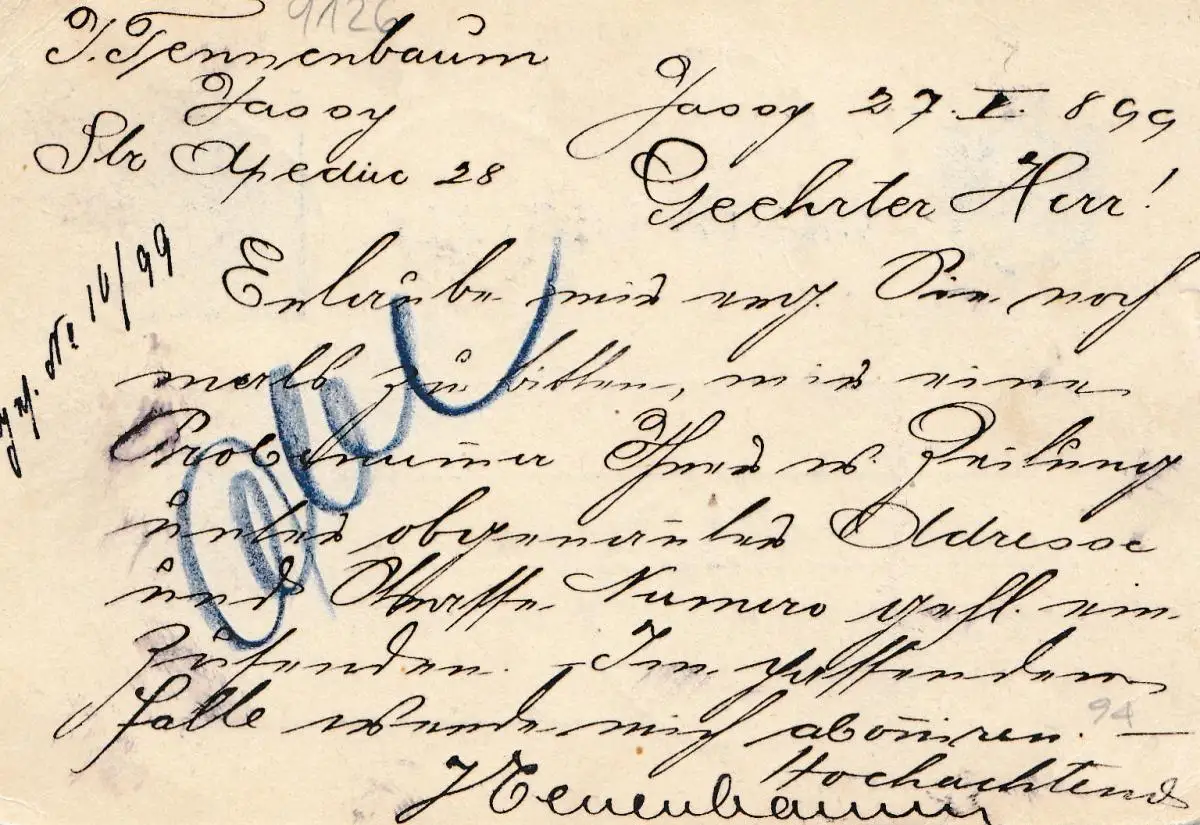 9126
J. Tennenbaum
Jassy
Str Apeduc 28
Jassy 27.V. 899
Geehrter Herr!
No 16/99
Erlaube mir erg. Sie noch
mals zu bitten, mir eine
Probenumer Ihrer w. Zeitung
unter obgenanter Adresse
und Strasse Numero gefl. ein
zusenden. Im passenden
falle werde mich aboniren. —
94
Hochachtend
J Tenenbaum